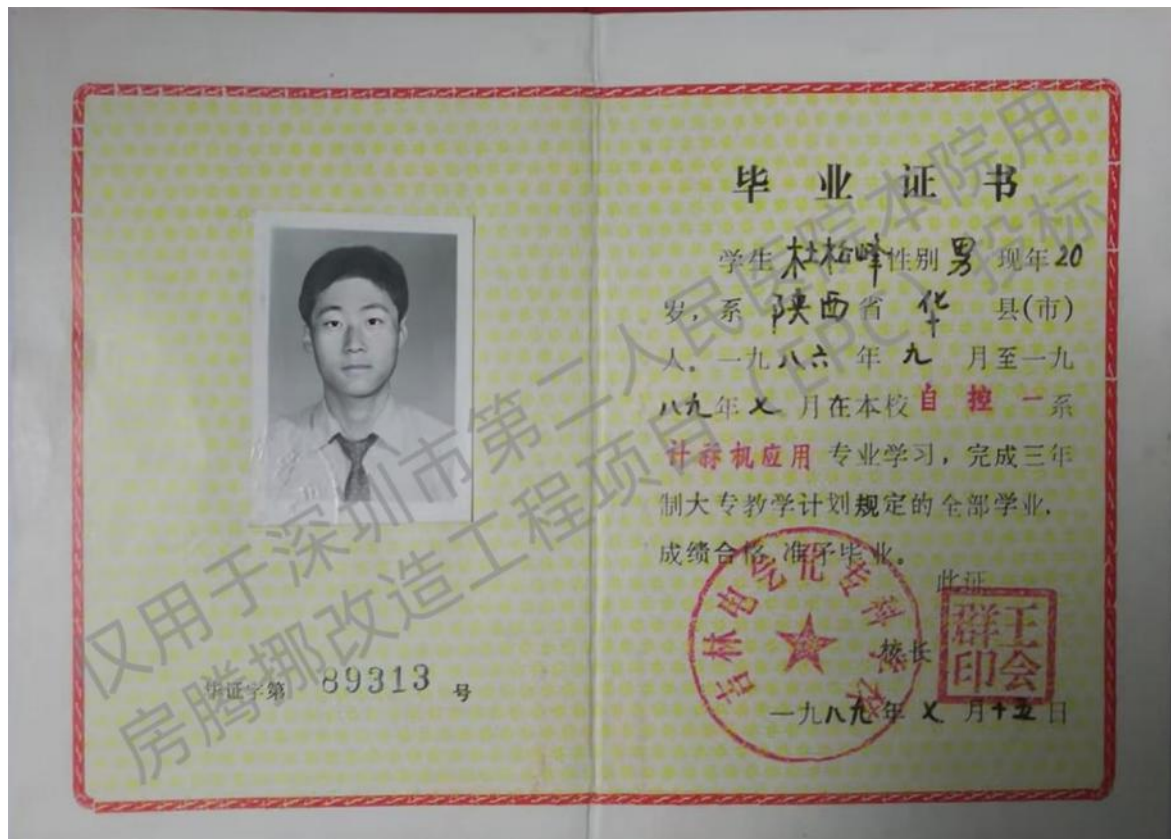 毕业证书
学生 杜松峰 性别 男 现年 20
岁，系 陕西省 华 县(市)
人。一九八六年九月至一九
八九年七月在本校自控一系
计祘机应用专业学习，完成三年
制大专教学计划规定的全部学业，
成绩合格，准予毕业。
此证
吉林电气化专科学校
校长
王会群印
一九八九年七月十五日
毕证字第 89313 号
仅用于深圳市第二人民医院本院用
房腾挪改造工程项目（EPC）投标